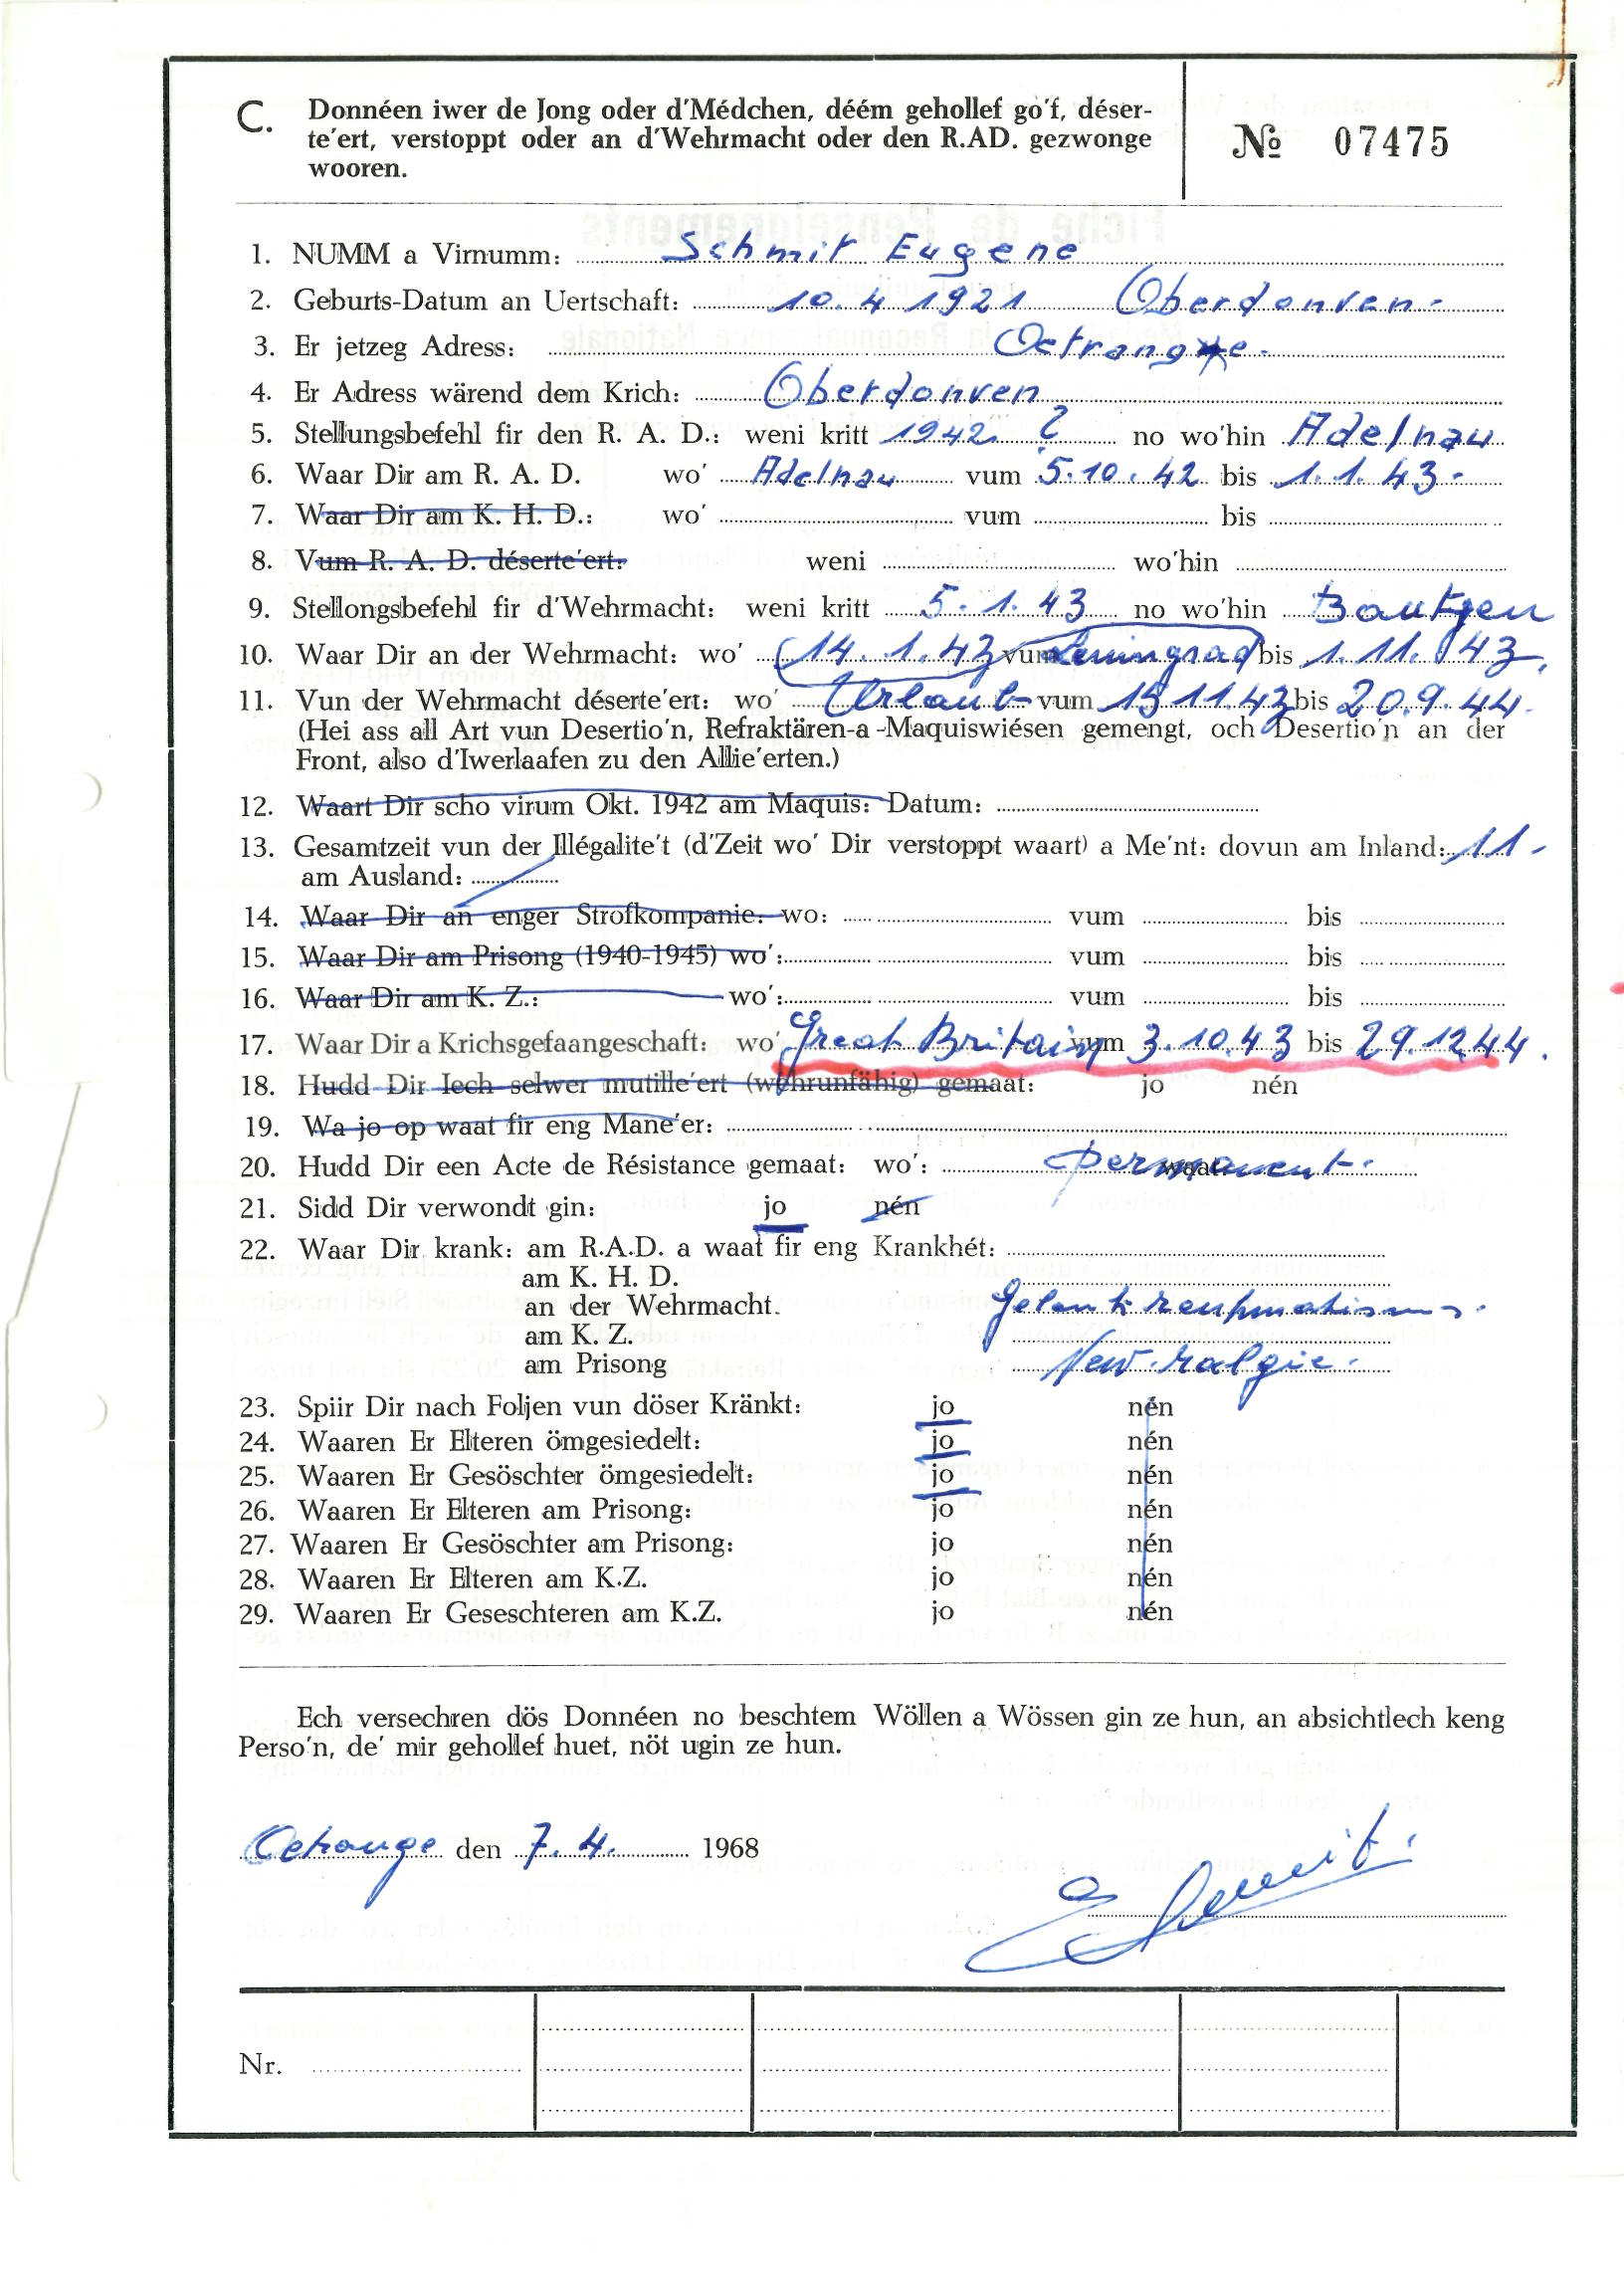 C. Donnéen iwer de Jong oder d'Médchen, déém gehollef go'f, déser-
te'ert, verstoppt oder an d'Wehrmacht oder den R.AD. gezwonge
wooren.
№ 07475
1. NUMM a Virnumm: Schmit Eugene
2. Geburts-Datum an Uertschaft: 10.4 1921 Oberdonven.
3. Er jetzeg Adress: Oetrange.
4. Er Adress wärend dem Krich: Oberdonven
5. Stellungsbefehl fir den R. A. D.: weni kritt 1942. ? no wo'hin Adelnau
6. Waar Dir am R. A. D. wo' Adelnau vum 5.10.42 bis 1.1.43.
7. Waar Dir am K. H. D.: wo' vum bis
8. Vum R. A. D. déserte'ert: weni wo'hin
9. Stellongsbefehl fir d'Wehrmacht: weni kritt 5.1.43 no wo'hin Bautzen
10. Waar Dir an der Wehrmacht: wo' 14.1.43 vum Leningrad bis 1.11.43.
11. Vun der Wehrmacht déserte'ert: wo' Urlaub vum 15 11.43 bis 20.9.44.
(Hei ass all Art vun Desertio'n, Refraktären-a -Maquiswiésen gemengt, och Desertio'n an der
Front, also d'Iwerlaafen zu den Allie'erten.)
12. Waart Dir scho virum Okt. 1942 am Maquis: Datum:
13. Gesamtzeit vun der Illégalite't (d'Zeit wo' Dir verstoppt waart) a Me'nt: dovun am Inland: 11.
am Ausland:
14. Waar Dir an enger Strofkompanie: wo: vum bis
15. Waar Dir am Prisong (1940-1945) wo': vum bis
16. Waar Dir am K. Z.: wo': vum bis
17. Waar Dir a Krichsgefaangeschaft: wo' Great Britain vum 3.10.43 bis 29.12.44.
18. Hudd Dir Iech selwer mutille'ert (wehrunfähig) gemaat: jo nén
19. Wa jo op waat fir eng Mane'er:
20. Hudd Dir een Acte de Résistance gemaat: wo': waat permanent.
21. Sidd Dir verwondt gin: jo nén
22. Waar Dir krank: am R.A.D. a waat fir eng Krankhét:
am K. H. D.
an der Wehrmacht. Gelenkreuhmatismus.
am K. Z.
am Prisong New-ralgie.
23. Spiir Dir nach Foljen vun döser Kränkt: jo nén
24. Waaren Er Elteren ömgesiedelt: jo nén
25. Waaren Er Gesöschter ömgesiedelt: jo nén
26. Waaren Er Elteren am Prisong: jo nén
27. Waaren Er Gesöschter am Prisong: jo nén
28. Waaren Er Elteren am K.Z. jo nén
29. Waaren Er Geseschteren am K.Z. jo nén
Ech versechren dös Donnéen no beschtem Wöllen a Wössen gin ze hun, an absichtlech keng
Perso'n, de' mir gehollef huet, nöt ugin ze hun.
Oetrange den 7.4. 1968
E Schmit
Nr.